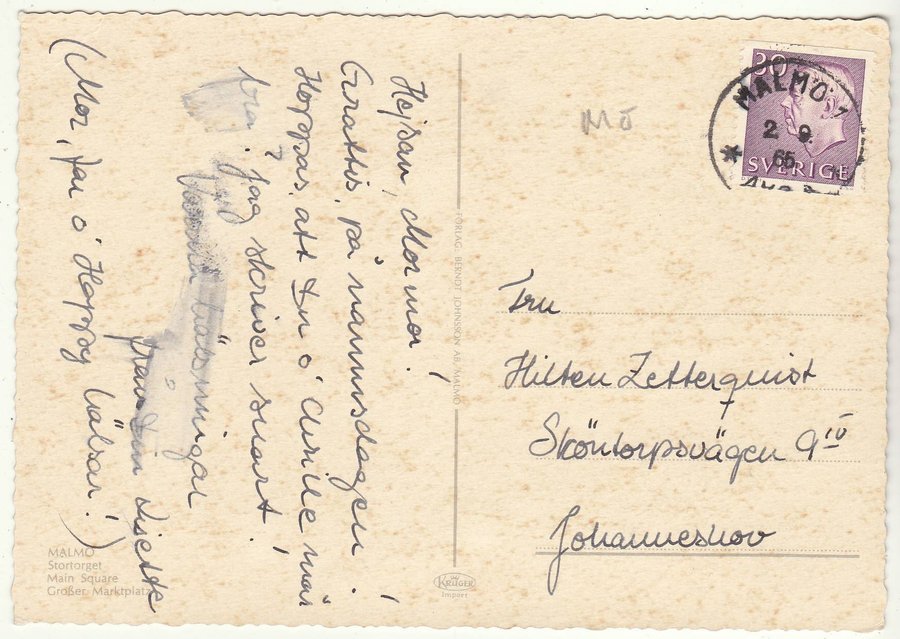 Hejsan, Mormor!
Grattis, på namnsdagen!
Hoppas, att Du o' mår
bra. Jag skriver snart!
hälsningar
från Din Lisette
(Mor, far o' Happy hälsar!)
MALMÖ
Stortorget
Main Square
Großer Marktplatz
FÖRLAG: BERNDT JOHNSSON AB, MALMÖ
KRÜGER
Import
MÖ
30
SVERIGE
MALMÖ 1
2 9.
65
Fru
Hilten Zetterquist
Sköntorpsvägen 9 IV
Johanneshov